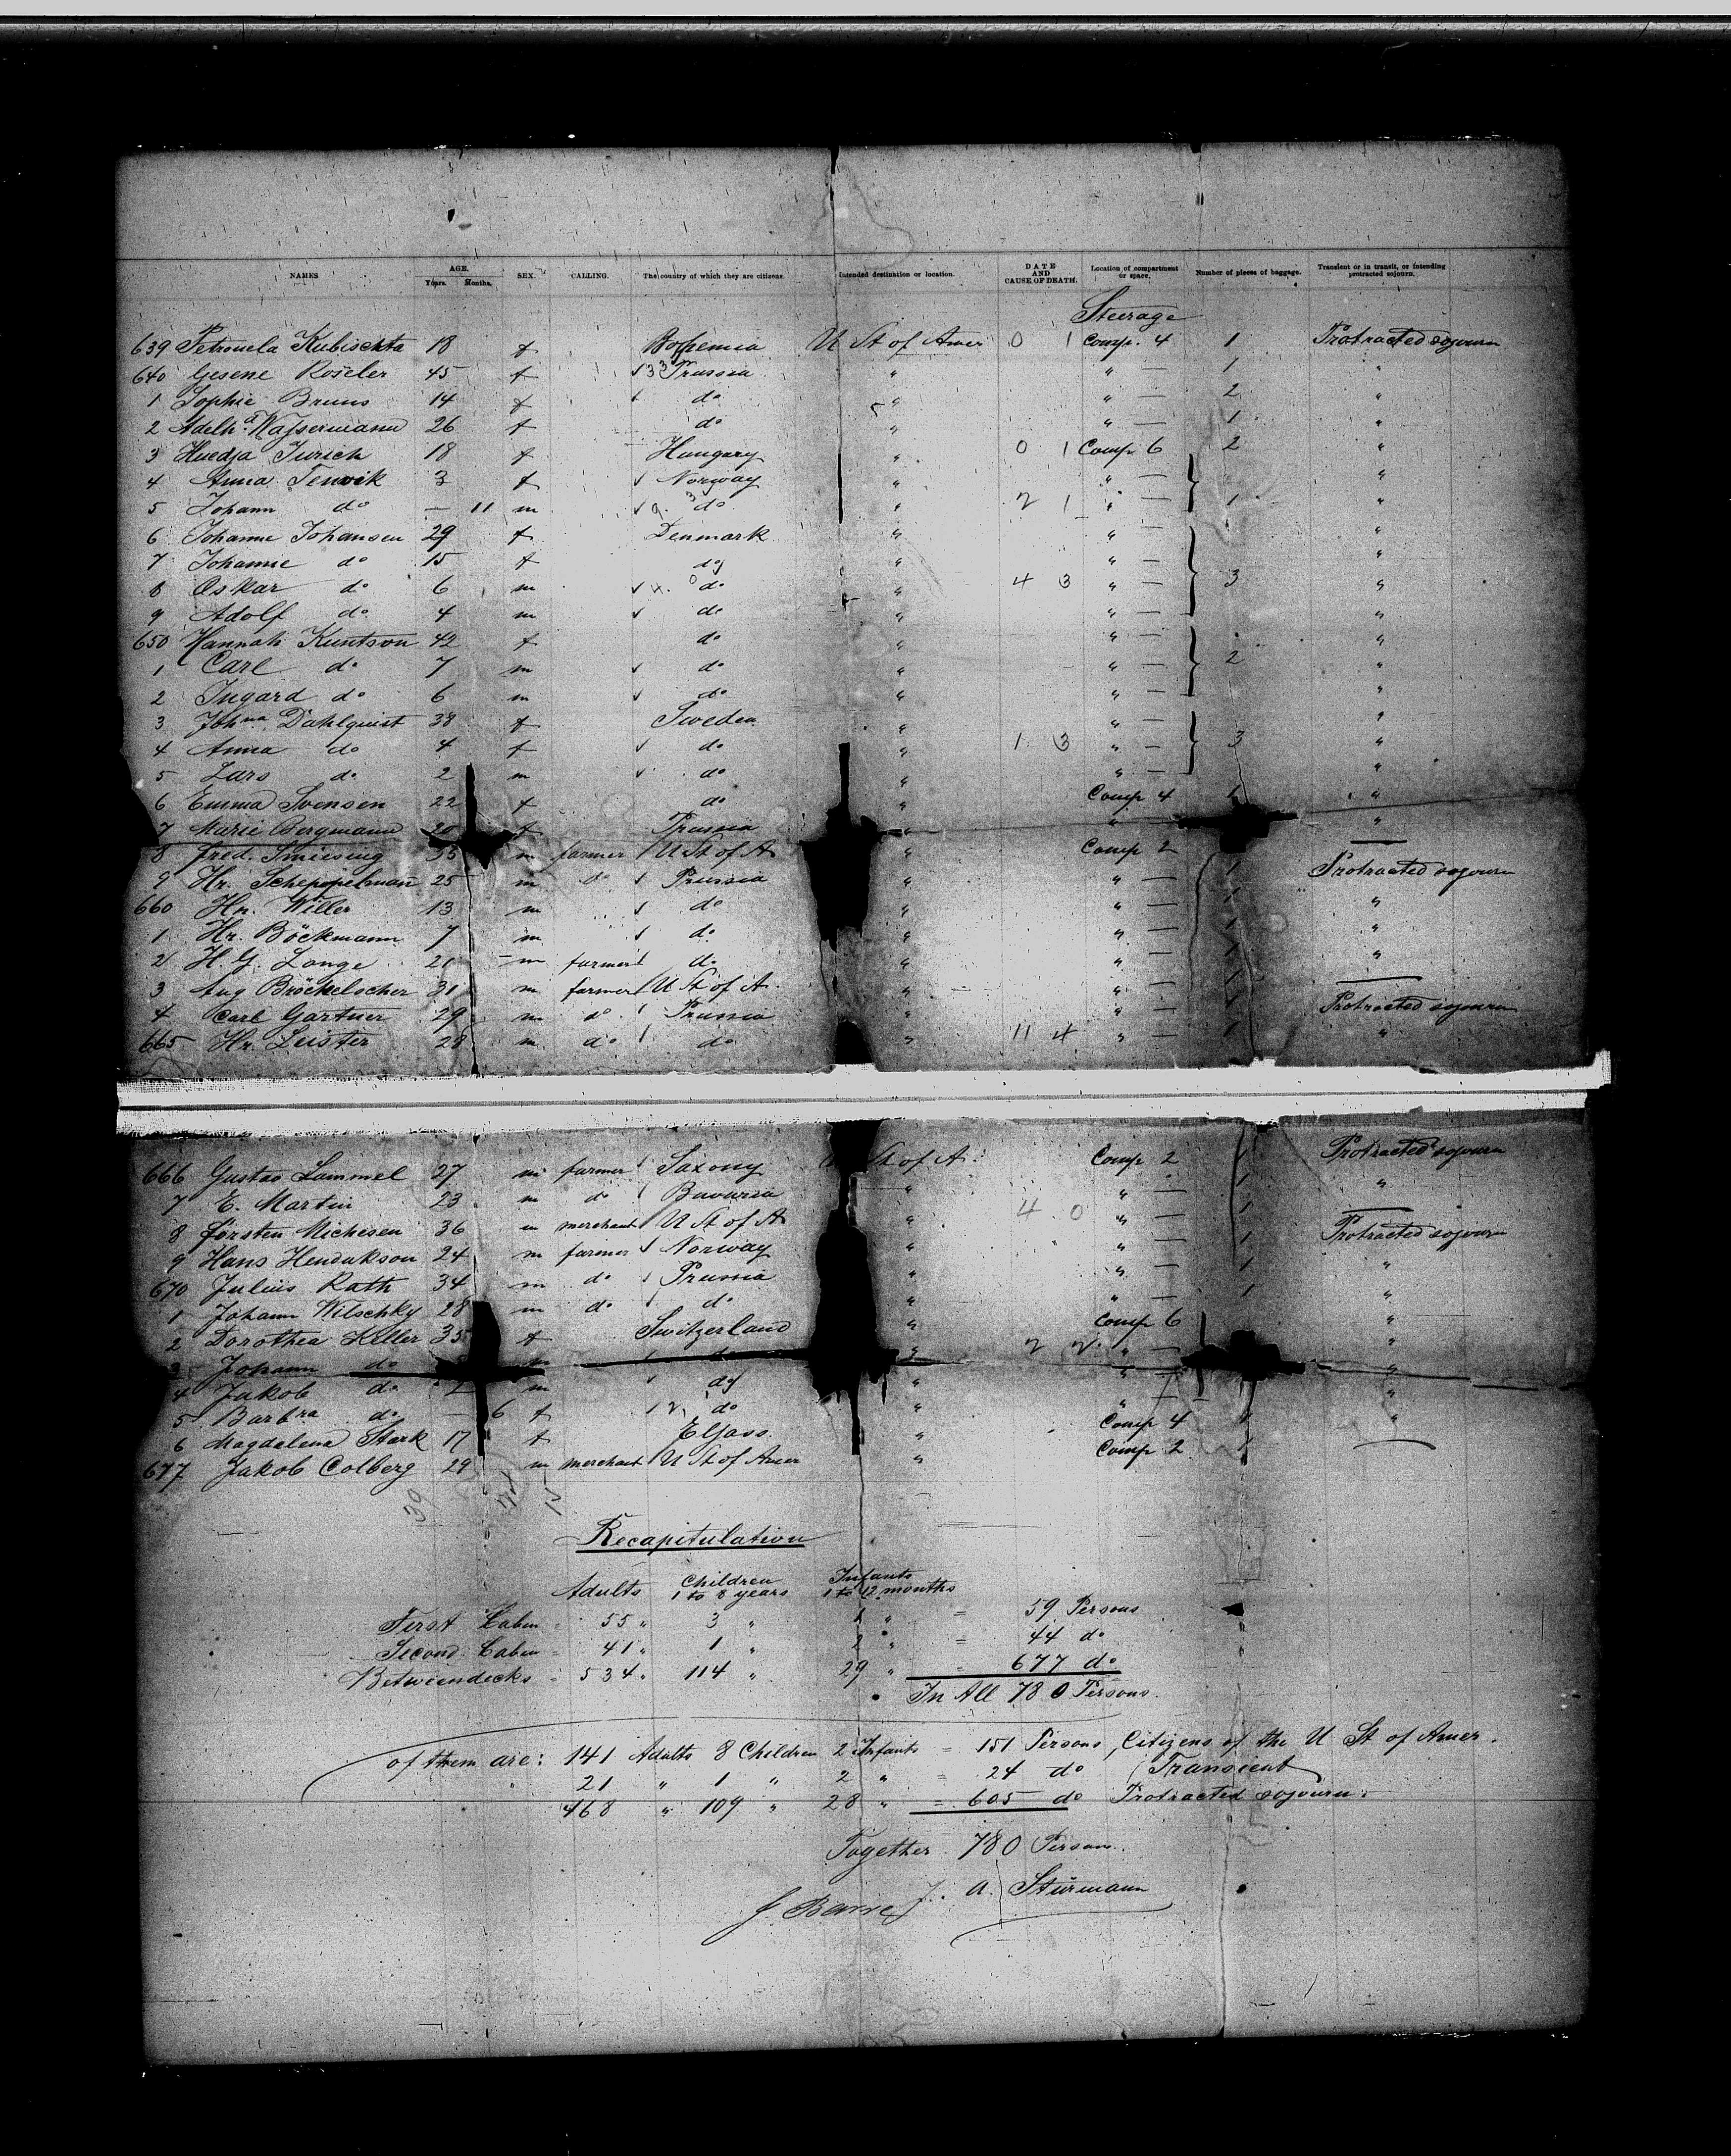 NAMES AGE. Years. Months. SEX. CALLING. The country of which they are citizens. Intended destination or location. DATE AND CAUSE OF DEATH. Location of compartment or space. Number of pieces of baggage. Transient or in transit, or intending protracted sojourn.
Steerage
639 Petronela Kubischta 18 f Bohemia U St of Amer 0 1 Comp. 4 1 Protracted sojourn
640 Gesene Roseler 45 f Prussia " " — 1 "
1 Sophie Bruns 14 f do " " — 2 "
2 Adelh.d Waſsermann 26 f do " " — 1 "
3 Huedja Jurich 18 f Hungary " 0 1 Comp 6 2 "
4 Anna Tenvik 3 f Norway " " — "
5 Johann do — 11 m do " 2 1 " — 1 "
6 Johanne Johansen 29 f Denmark " " — "
7 Johannie do 15 f do " " — "
8 Oskar do 6 m do " 4 3 " — 3 "
9 Adolf do 4 m do " " — "
650 Hannah Kuntson 42 f do " " — "
1 Carl do 7 m do " " — 2 "
2 Ingard do 6 m do " " — "
3 Johna Dahlquist 38 f Sweden " " — "
4 Anna do 4 f do " 1 3 " — 3 "
5 Lars do 2 m do " " — "
6 Emma Svensen 22 f do " Comp 4 1 "
7 Marie Bergmann 20 f Prussia " " — "
8 Fred. Smiesing 35 m farmer U St of A " Comp 2 —
9 Hr. Scheppelmann 25 m do Prussia " " — 1 Protracted sojourn
660 Hn. Willer 13 m do " " — 1 "
1 Hr. Böckmann 7 m do " " — 1 "
2 H. G. Lange 21 m farmer do " " — 1 "
3 Aug Bröckelscher 31 m farmer U St of A. " " — 1 —
4 Carl Gartner 29 m do Prussia " " — 1 Protracted sojourn
665 Hr. Leister 28 m do do " 11 4 " — 1 "
666 Gustav Lammel 27 m farmer Saxony St of A. Comp 2 1 Protracted sojourn
7 E. Martin 23 m do Bavaria " " — 1 "
8 Forsten Michesen 36 m merchant U St of A " 4 0 " — 1 —
9 Hans Hendrikson 24 m farmer Norway " " — 1 Protracted sojourn
670 Julius Rath 34 m do Prussia " " — 1 "
1 Johann Witschky 28 m do do " " — 1 "
2 Dorothea Keller 35 f Switzerland " Comp 6 "
3 Johann do m do " 2 2 " — "
4 Jakob do 2 m do " " — "
5 Barbra do — 6 f do " " — "
6 Magdalena Stark 17 f Elſass. " Comp 4 "
677 Jakob Colberg 29 m merchant U St of Amer " Comp 2 1 —
Recapitulation
Adults Children 1 to 8 years Infants 1 to 12 months
First Cabin 55 " 3 " 1 " = 59 Persons
Second Cabin 41 " 1 " 2 " = 44 do
Betweendecks 534 " 114 " 29 " = 677 do
In All 780 Persons.
of them are: 141 Adults 8 Children 2 Infants = 151 Persons, Citizens of the U St of Amer.
21 " 1 " 2 " = 24 do Transient
468 " 109 " 28 " = 605 do Protracted sojourn.
Together 780 Person.
J. Barre J. A. Stürmann